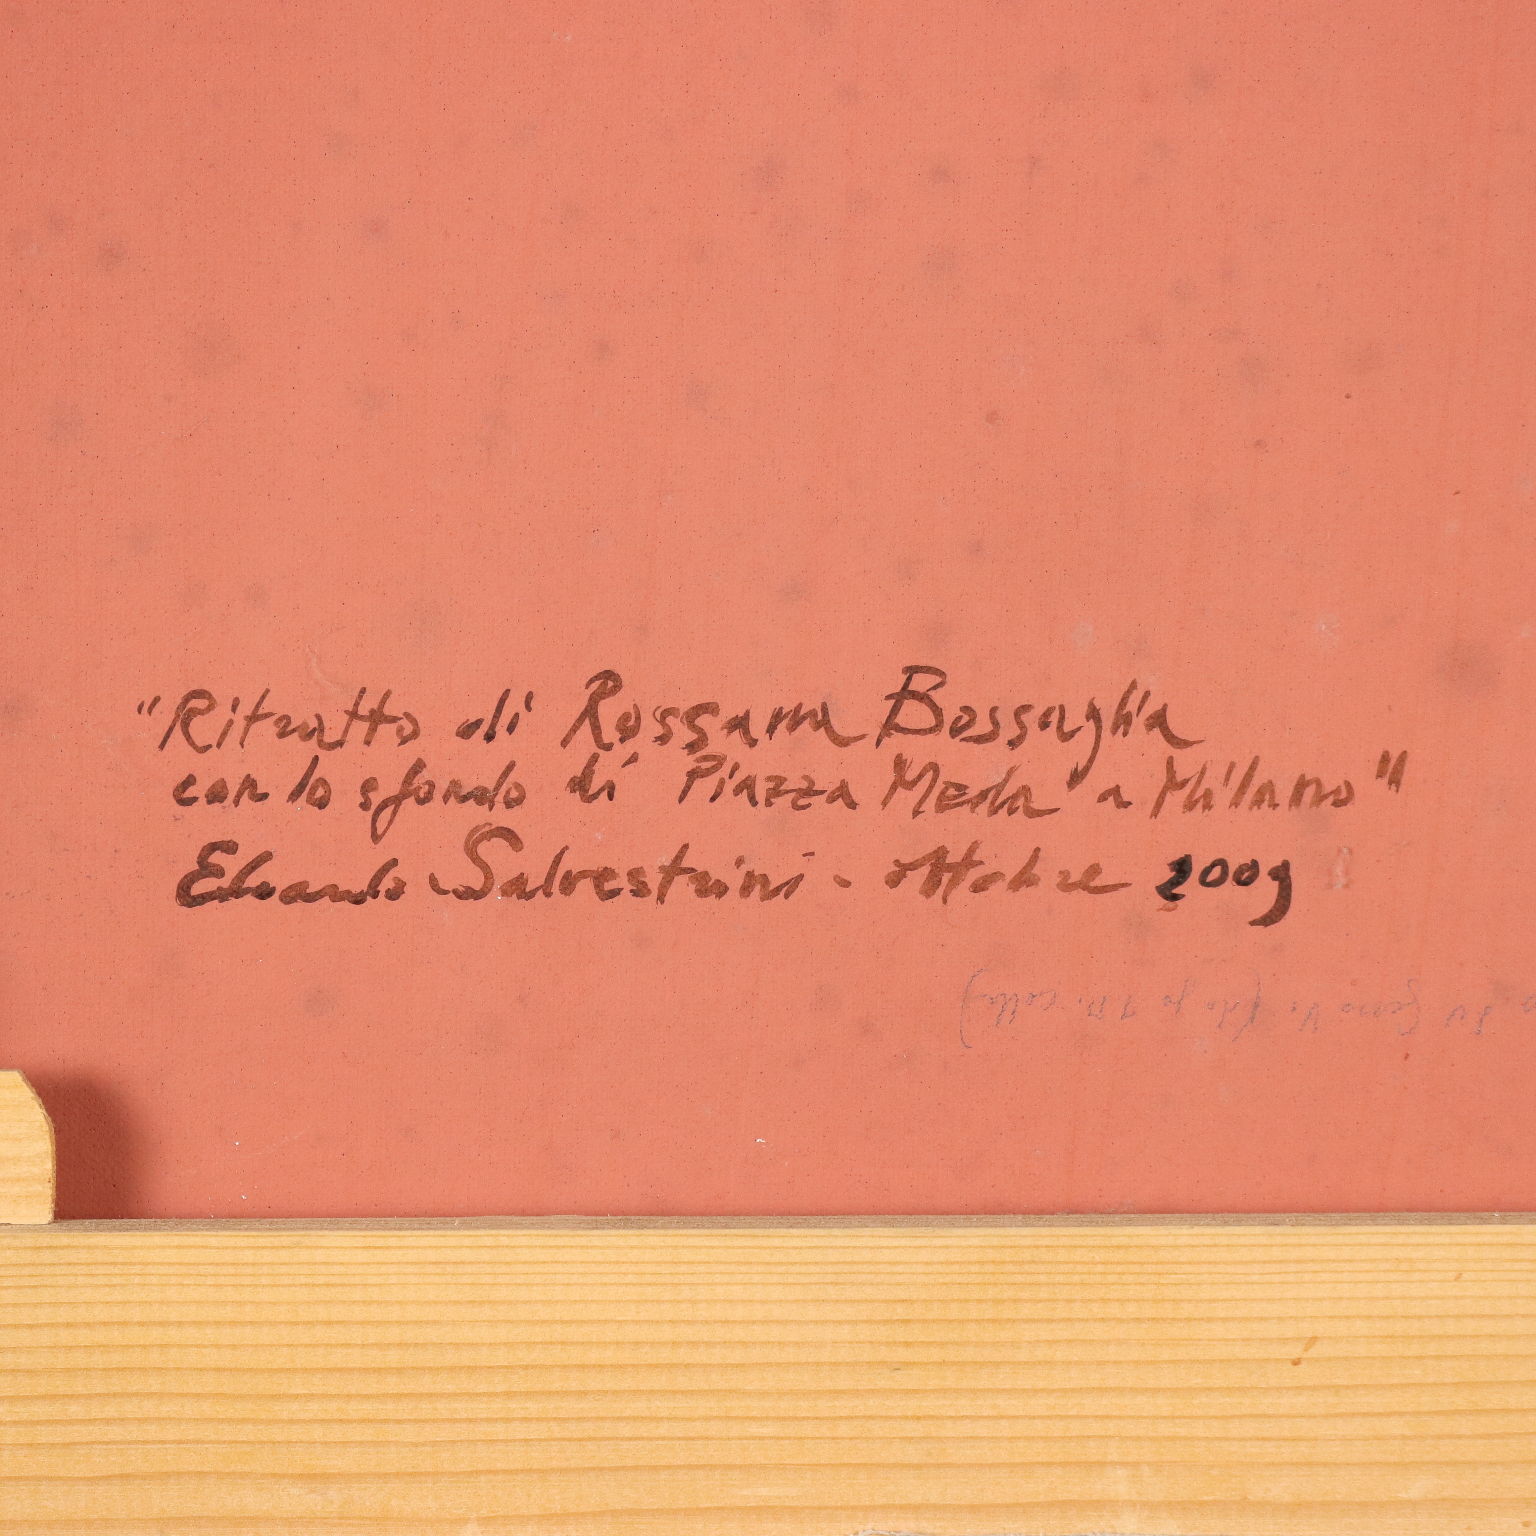 "Ritratto di Rossana Bossaglia
con lo sfondo di Piazza Meda a Milano"
Edoardo Salvestrini - ottobre 2009